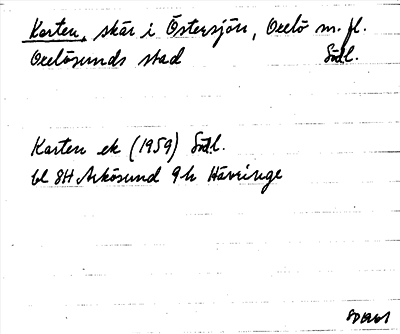 Karten, skär i Östersjön, Oxelö m. fl.
Oxelösunds stad Södl.
Karten ek (1959) Södl.
bl 8H Arkösund 9h Hävringe